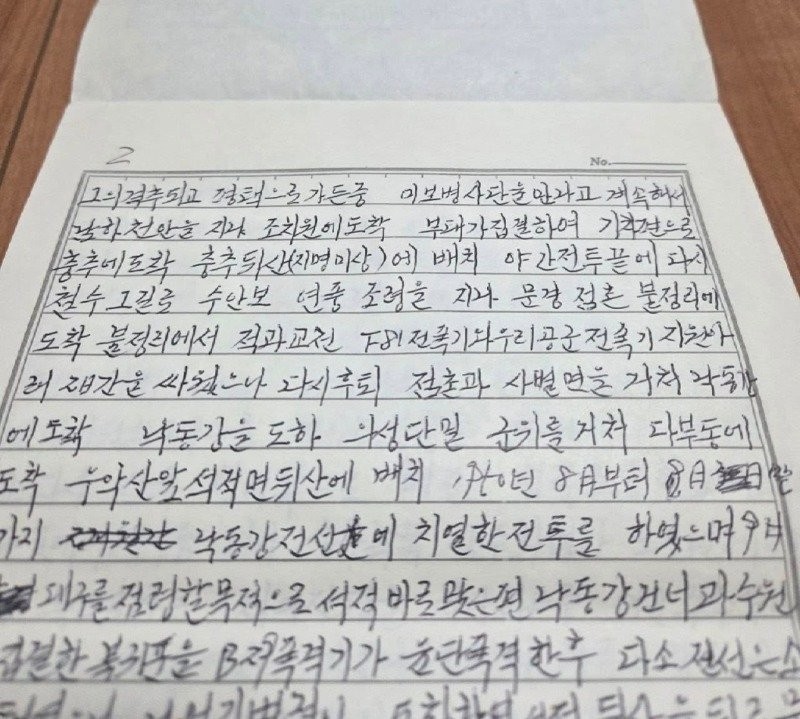 2
No.
그의격추되고 평택으로가든중 미보병사단을만나고 계속해서
남하천안을 지나 조치원에도착 부대가집결하여 기차편으로
충주에도착 충주뒤산(지명미상)에 배치 야간전투끝에다시
철수그길로 수안보 연풍 조령을 지나 문경 점촌 불정리에
도착 불정리에서 적과교전 F81전폭기와우리공군전폭기지원아
러 간을 싸웠으나 다시후퇴 점촌과 사벌면을 거쳐 낙동강
에도착 낙동강을 도하 의성단밀 군위를 거쳐 다부동에
도착 우악산앞석적면뒤산에 배치 8月부터 8月 日
가지 낙동강전선에 치열한전투를 하였으며 9月
대구를점령할목적으로 석적바로맞은편 낙동강건너과수원
집결한 폭격기가 융단폭격한후 다소전선은소